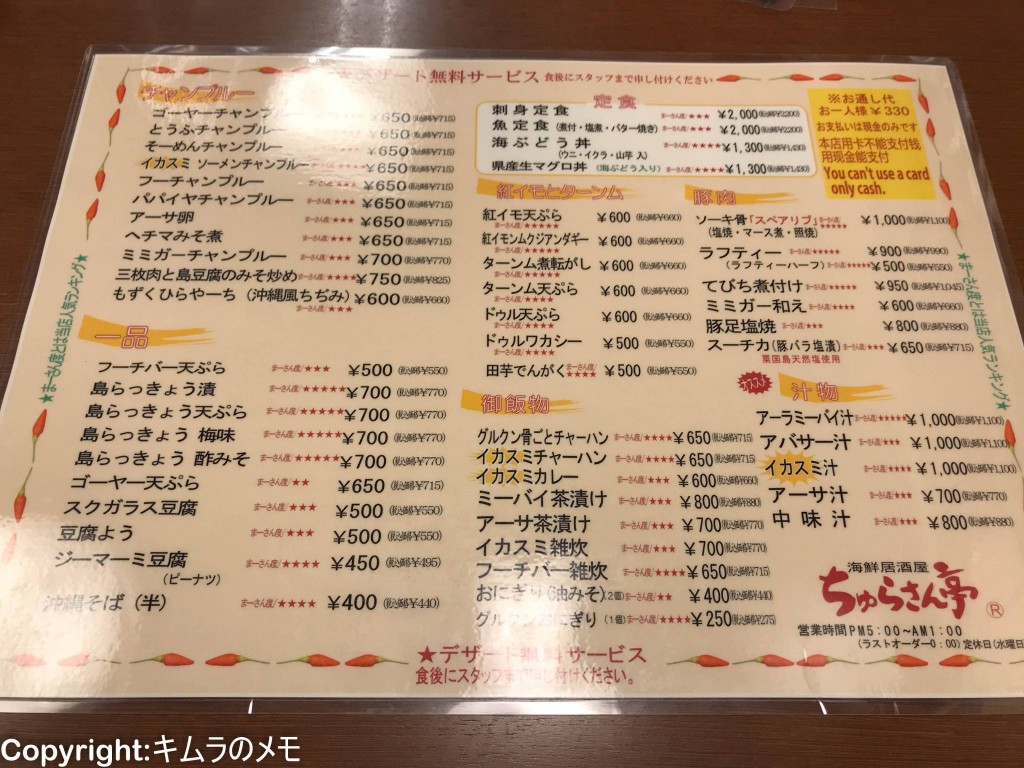 デザート無料サービス 食後にスタッフまで申し付けください
チャンプルー
ゴーヤーチャンプルー ¥650(税込¥715)
とうふチャンプルー ¥650(税込¥715)
そーめんチャンプルー ¥650(税込¥715)
イカスミ ソーメンチャンプルー ¥650(税込¥715)
フーチャンプルー ¥650(税込¥715)
パパイヤチャンプルー まーさん度/★★★ ¥650(税込¥715)
アーサ卵 まーさん度/★★★ ¥650(税込¥715)
ヘチマみそ煮 まーさん度/★★★ ¥650(税込¥715)
ミミガーチャンプルー まーさん度/★★★ ¥700(税込¥770)
三枚肉と島豆腐のみそ炒め まーさん度/★★★★ ¥750(税込¥825)
もずくひらやーち (沖縄風ちぢみ) ¥600(税込¥660)
まーさん度/★★★
一品
フーチバー天ぷら まーさん度/★★★ ¥500(税込¥550)
島らっきょう漬 まーさん度/★★★★★ ¥700(税込¥770)
島らっきょう天ぷら まーさん度/★★★★★ ¥700(税込¥770)
島らっきょう 梅味 まーさん度/★★★★★ ¥700(税込¥770)
島らっきょう 酢みそ まーさん度/★★★★★ ¥700(税込¥770)
ゴーヤー天ぷら まーさん度/★★ ¥650(税込¥715)
スクガラス豆腐 まーさん度/★★ ¥500(税込¥550)
豆腐よう まーさん度/★★★ ¥500(税込¥550)
ジーマーミ豆腐 まーさん度/★★★★ ¥450(税込¥495)
(ピーナツ)
沖縄そば (半) まーさん度/★★★★ ¥400(税込¥440)
★まーさん度とは当店人気ランキング★
定食
刺身定食 まーさん度/★★★ ¥2,000(税込¥2200)
魚定食 (煮付・塩煮・バター焼き) まーさん度/★★★ ¥2,000(税込¥2200)
海ぶどう丼 まーさん度/★★★★ ¥1,300(税込¥1,430)
(ウニ・イクラ・山芋 入)
県産生マグロ丼 (海ぶどう入り) まーさん度/★★★★ ¥1,300(税込¥1,430)
紅イモとターンム
紅イモ天ぷら ¥600(税込¥660)
まーさん度/★★★★★
紅イモンムクジアンダギー ¥600(税込¥660)
まーさん度/★★★★★
ターンム煮転がし ¥600(税込¥660)
まーさん度/★★★★
ターンム天ぷら ¥600(税込¥660)
まーさん度/★★★★★
ドゥル天ぷら ¥600(税込¥660)
まーさん度/★★★★
ドゥルワカシー ¥500(税込¥550)
まーさん度/★★★★
田芋でんがく まーさん度/★★★★ ¥500(税込¥550)
御飯物
グルクン骨ごとチャーハン まーさん度/★★★★ ¥650(税込¥715)
イカスミチャーハン まーさん度/★★★★ ¥650(税込¥715)
イカスミカレー まーさん度/★★★ ¥600(税込¥660)
ミーバイ茶漬け まーさん度/★★★ ¥800(税込¥880)
アーサ茶漬け まーさん度/★★★ ¥700(税込¥770)
イカスミ雑炊 まーさん度/★★★ ¥700(税込¥770)
フーチバー雑炊 まーさん度/★★★ ¥650(税込¥715)
おにぎり(油みそ)2個 まーさん度/★★ ¥400(税込¥440)
グルクンおにぎり (1個) まーさん度/★★★★ ¥250(税込¥275)
※お通し代
お一人様¥330
お支払いは現金のみです
本店用卡不能支付钱
用现金能支付
You can't use a card
only cash.
豚肉
ソーキ骨「スペアリブ」 ¥1,000(税込¥1,100)
(塩焼・マース煮・照焼)
ラフティー ¥900(税込¥990)
(ラフティーハーフ) ¥500(税込¥550)
てびち煮付け まーさん度/★★★★ ¥950(税込¥1,045)
ミミガー和え まーさん度/★★★★ ¥600(税込¥660)
豚足塩焼 まーさん度/★★★ ¥800(税込¥880)
スーチカ(豚バラ塩漬) まーさん度/★★★ ¥650(税込¥715)
粟国島天然塩使用
オススメ
汁物
アーラミーバイ汁 まーさん度/★★★★★ ¥1,000(税込¥1,100)
アバサー汁 まーさん度/★★★ ¥1,000(税込¥1,100)
イカスミ汁 まーさん度/★★★★ ¥1,000(税込¥1,100)
アーサ汁 まーさん度/★★★★ ¥700(税込¥770)
中味汁 まーさん度/★★★ ¥800(税込¥880)
★まーさん度とは当店人気ランキング★
海鮮居酒屋
ちゅらさん亭 ®
営業時間PM5:00~AM1:00
(ラストオーダー0:00) 定休日(水曜日
★デザート無料サービス
食後にスタッフまで申し付けください。
Copyright:キムラのメモ